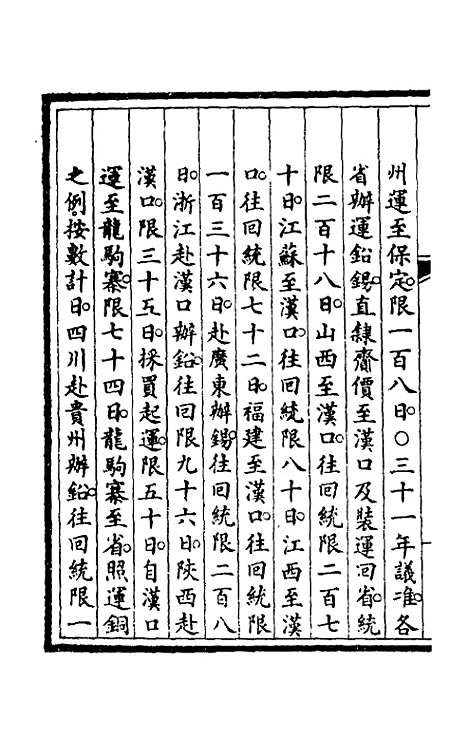 州運至保定。限一百八日。○三十一年議准。各
省辦運鉛錫。直隸齎價至漢口及裝運回省。統
限二百十八日。山西至漢口。往回統限二百七
十日。江蘇至漢口。往回統限八十日。江西至漢
口。往回統限七十二日。福建至漢口。往回統限
一百三十六日。赴廣東辦錫。往回統限二百八
日。浙江赴漢口辦鉛。往回限九十六日。陝西赴
漢口。限三十五日。採買起運。限五十日。自漢口
運至龍駒寨。限七十四日。龍駒寨至省。照運銅
之例。按數計日。四川赴貴州辦鉛。往回統限一